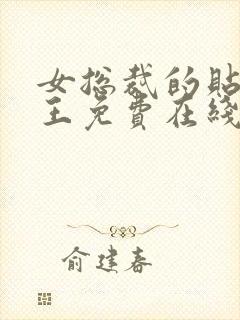 女总裁的贴
王免费在线
俞建春